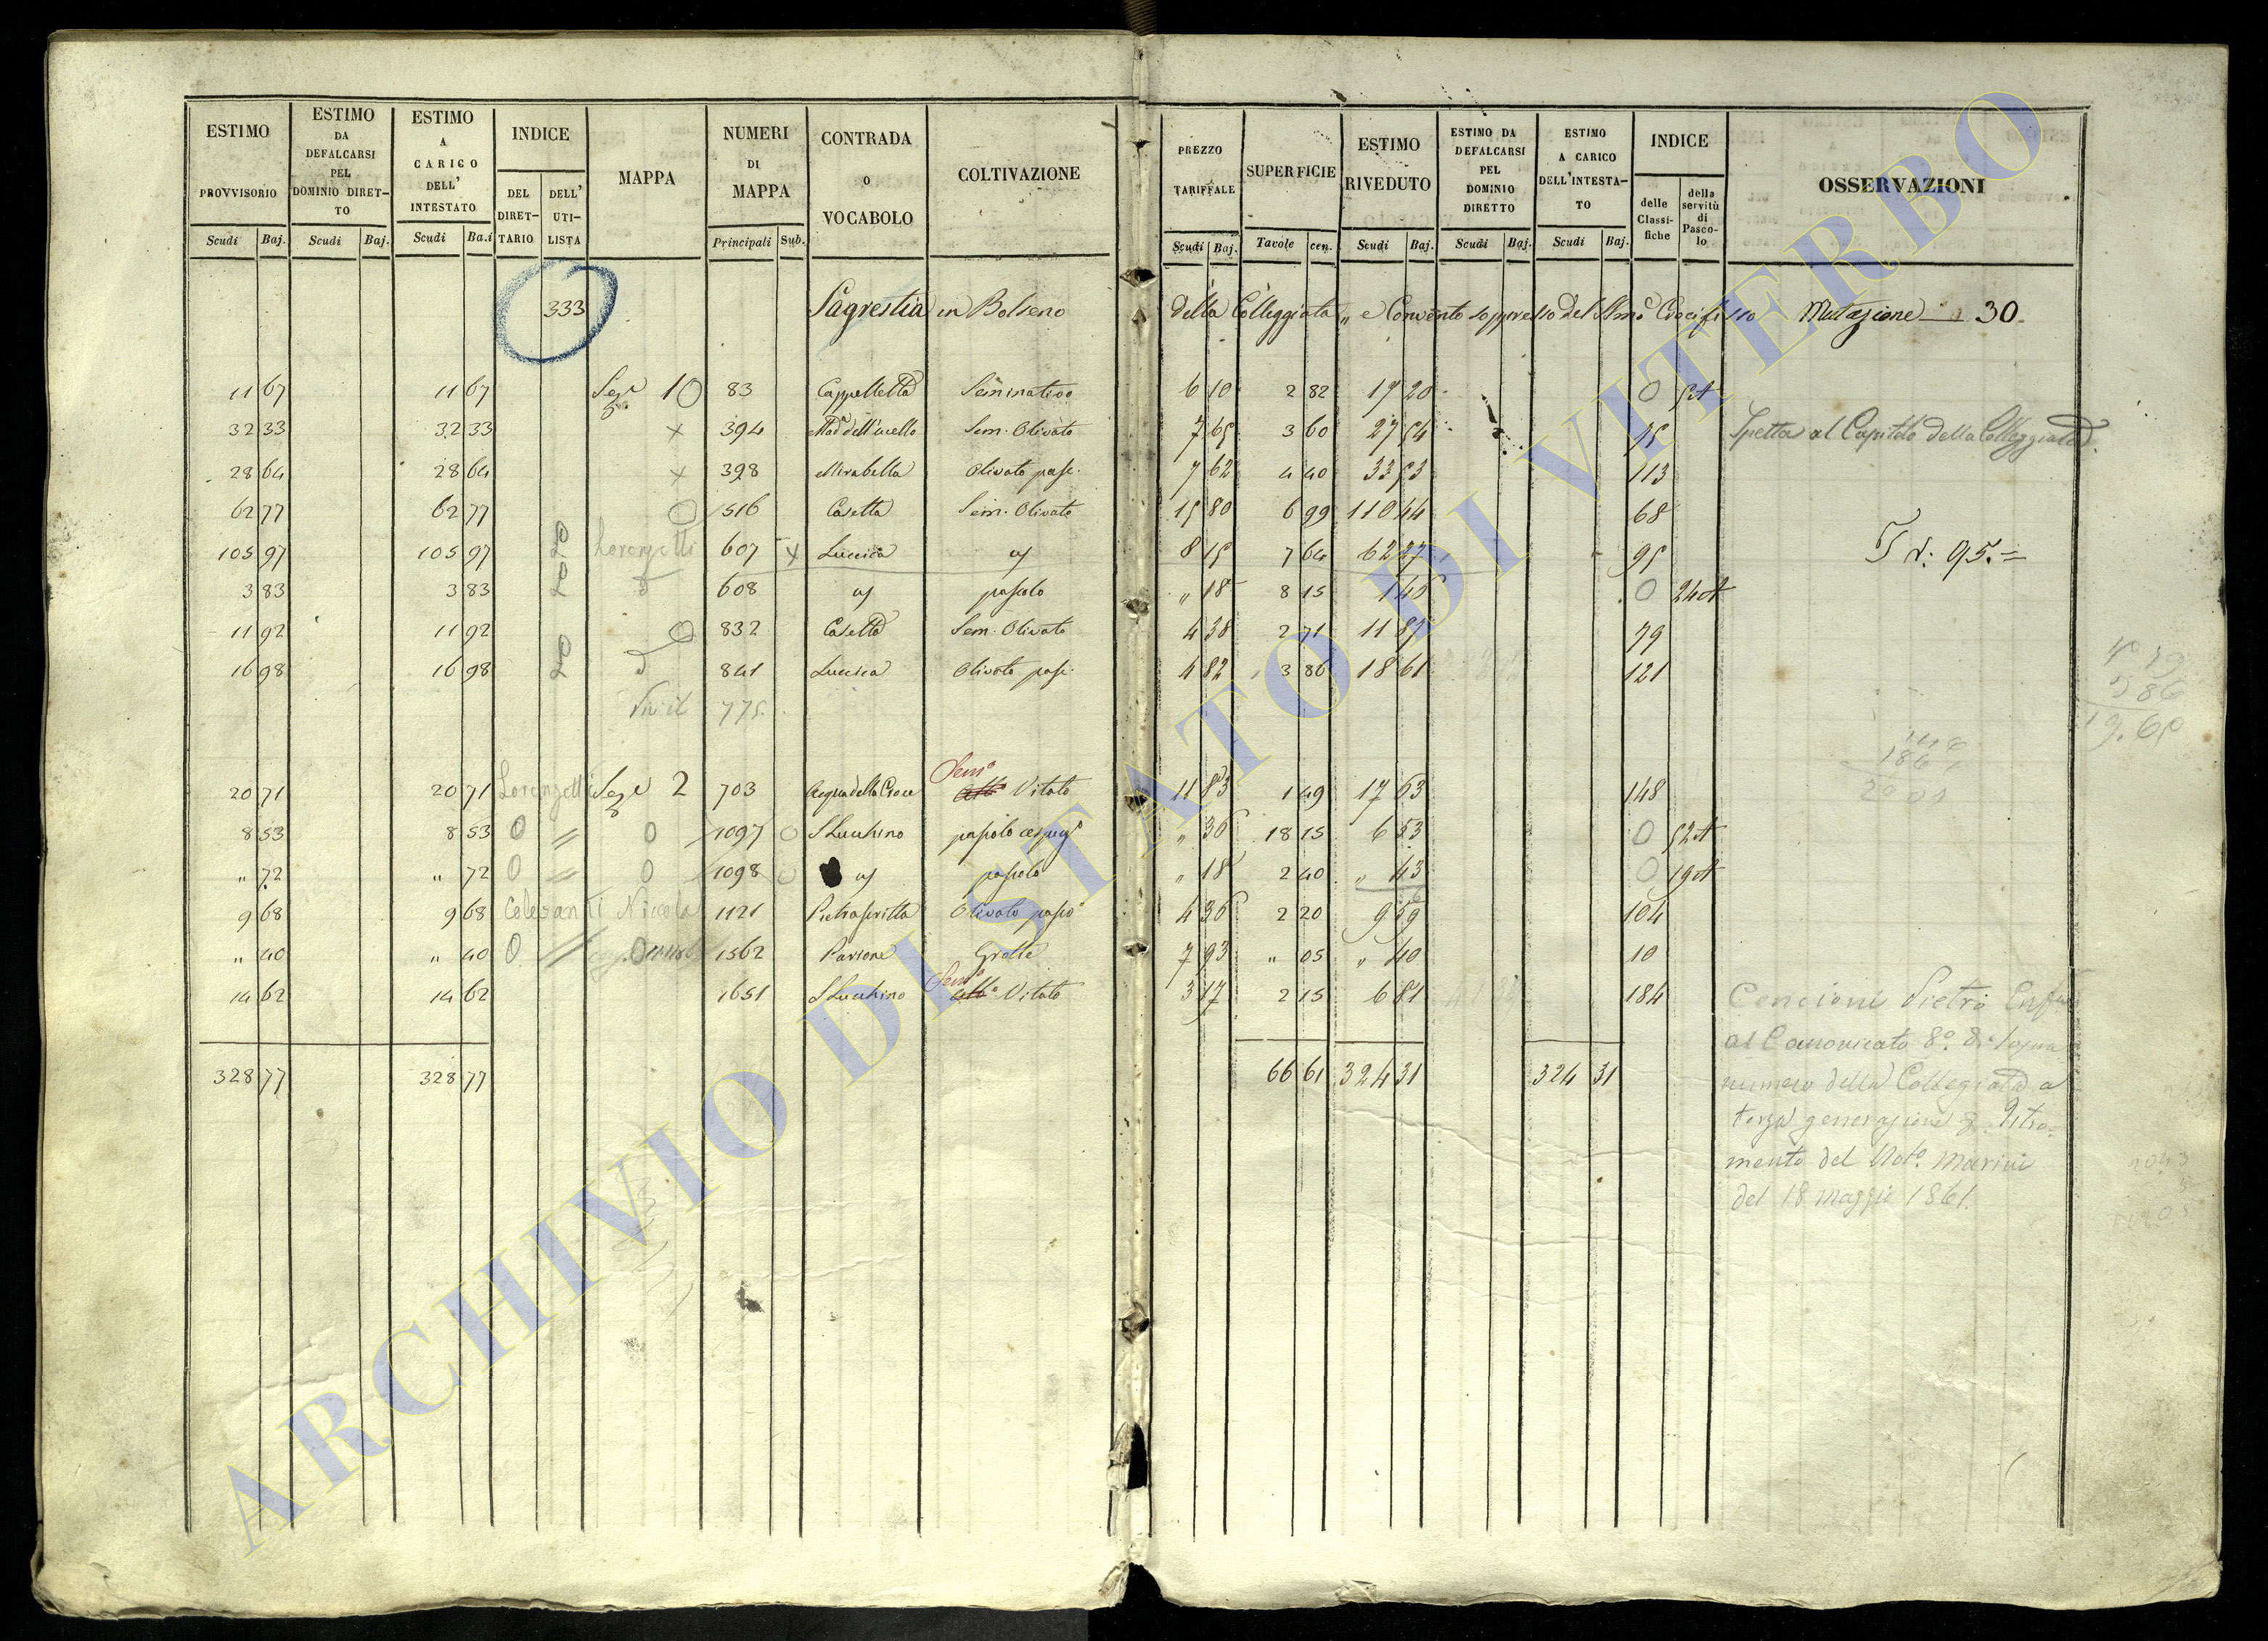 ESTIMO PROVVISORIO | ESTIMO DA DEFALCARSI PEL DOMINIO DIRET-TO | ESTIMO A CARICO DELL' INTESTATO | INDICE | MAPPA | NUMERI DI MAPPA | CONTRADA O VOCABOLO | COLTIVAZIONE | PREZZO TARIFFALE | SUPERFICIE | ESTIMO RIVEDUTO | ESTIMO DA DEFALCARSI PEL DOMINIO DIRETTO | ESTIMO A CARICO DELL'INTESTA-TO | INDICE | OSSERVAZIONI
DEL DIRET-TARIO | DELL' UTI-LISTA | delle Classi-fiche | della servitù di Pasco-lo
Scudi | Baj. | Scudi | Baj. | Scudi | Ba.i | Principali | Sub. | Scudi | Baj. | Tavole | cen. | Scudi | Baj. | Scudi | Baj. | Scudi | Baj.
333 Sagrestia in Bolseno della Colleggiata „ e Convento soppresso del SSmo Crocifisso Mutazione 30
11 67 | 11 67 | Sez.e 1 0 | 83 | Cappelletta | Seminativo | 6 10 | 2 82 | 17 20 | 0
32 33 | 32 33 | x | 394 | Mad.a dell'ucello | Sem. Olivato | 7 65 | 3 60 | 27 54 | 75 | Spetta al Capitolo della Colleggiata
28 64 | 28 64 | x | 398 | Mirabella | Olivato pasc. | 7 62 | 4 40 | 33 53 | 113
62 77 | 62 77 | 0 | 516 | Casetta | Sem. Olivato | 15 80 | 6 99 | 110 44 | 68
105 97 | 105 97 | Lorenzetti | 607 | x | Luccica | 8 15 | 7 64 | 62 27 | 95 | T N: 95.=
3 83 | 3 83 | 608 | pascolo | „ 18 | 8 15 | 1 46 | 0 | 24 A
11 92 | 11 92 | 0 | 832 | Casetta | Sem. Olivato | 4 38 | 2 71 | 11 87 | 79
16 98 | 16 98 | 841 | Luccica | Olivato pasc. | 4 82 | 3 86 | 18 61 | 121
775.
20 71 | 20 71 | Lorenzetti | Sez.e 2 | 703 | Acqua della Croce | Sem.o Vitato | 11 83 | 1 49 | 17 63 | 148
8 53 | 8 53 | 0 | // | 0 | 1097 | 0 | S Lucchino | pascolo cespug.o | „ 36 | 18 15 | 6 53 | 0 | 52 A
„ 72 | „ 72 | 0 | // | 0 | 1098 | 0 | pascolo | „ 18 | 2 40 | „ 43 | 0 | 19 A
9 68 | 9 68 | Colesanti Nicola | 1121 | Pietrascritta | Olivato pasco | 4 36 | 2 20 | 9 59 | 104
„ 40 | „ 40 | 0 | // | 1562 | Parione | Grotte | 7 93 | „ 05 | „ 40 | 10
14 62 | 14 62 | 1651 | S Lucchino | Sem.o Vitato | 3 17 | 2 15 | 6 81 | 184
328 77 | 328 77 | 66 61 | 324 31 | 324 31
Cencioni Pietro
al Canonicato 8.o di
numero della Collegiata a
terza generazione Istro-
mento del Not.o Marini
del 18 maggio 1861.
ARCHIVIO DI STATO DI VITERBO